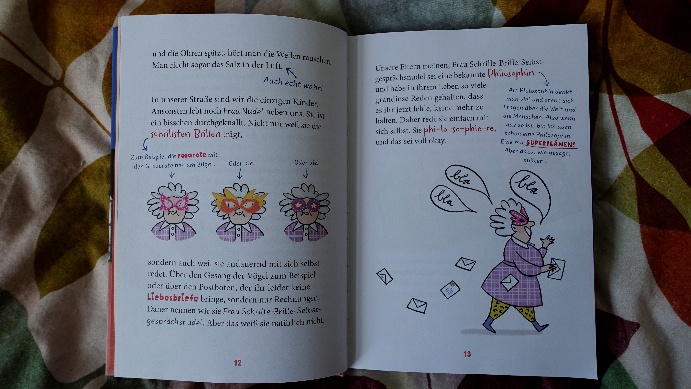 und die Ohren spitzt, hört man die Wellen rauschen.
Man riecht sogar das Salz in der Luft.
Auch echt wahr!
In unserer Straße sind wir die einzigen Kinder.
Ansonsten lebt noch Frau Nudel neben uns. Sie ist
ein bisschen durchgeknallt. Nicht nur weil sie die
schrillsten Brillen trägt,
Zum Beispiel die rosarote mit
Oder die
Oder die
sondern auch weil sie andauernd mit sich selbst
redet. Über den Gesang der Vögel zum Beispiel
oder über den Postboten, der ihr leider keine
Liebesbriefe bringe, sondern nur Rechnungen.
Daher nennen wir sie Frau Schrille-Brille-Selbst-
gesprächsnudel. Aber das weiß sie natürlich nicht.
12
Unsere Eltern meinen, Frau Schrille-Brille-Selbst-
gesprächsnudel sei eine bekannte Philosophin
und habe in ihrem Leben so viele
grandiose Reden gehalten, dass
es ihr jetzt fehle, keine mehr zu
halten. Daher rede sie einfach mit
sich selbst. Sie phi-lo-so-phie-re,
und das sei voll okay.
Als Philosophin denkt
man viel und
die Menschen. Also wenn
SUPERHIRN
bla
bla
bla
13